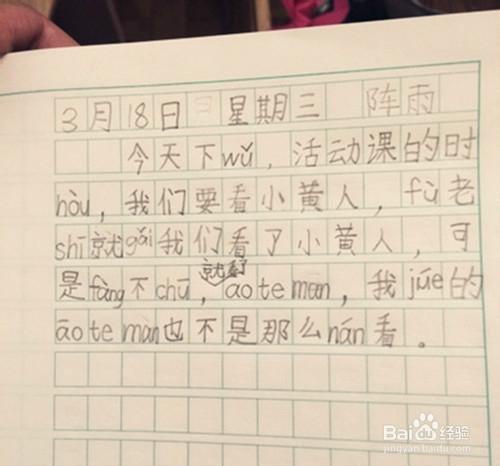 3月18日 日 星期三 阵雨
今天下wǔ，活动课的时
hòu，我们要看小黄人，fù老
shī就gǎi我们看了小黄人，可
是fàng不chū，就看了ao te man，我jüe的
āo te màn也不是那么nán看。
Bai 经验
jingyan.baidu.com